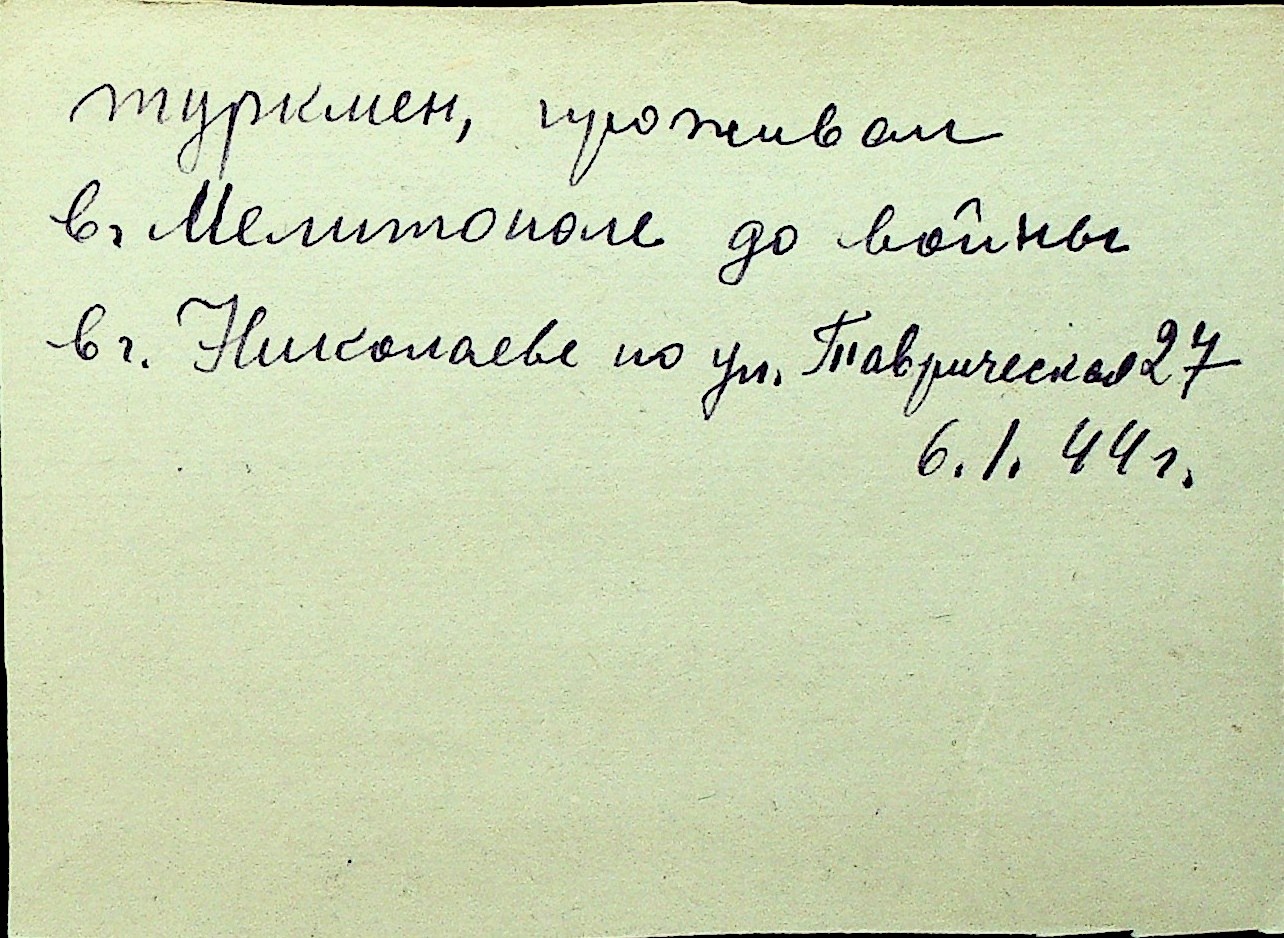 туркмен, проживал
в г. Мелитополе до войны
в г. Николаеве по ул. Таврическая 27
6.1.44 г.